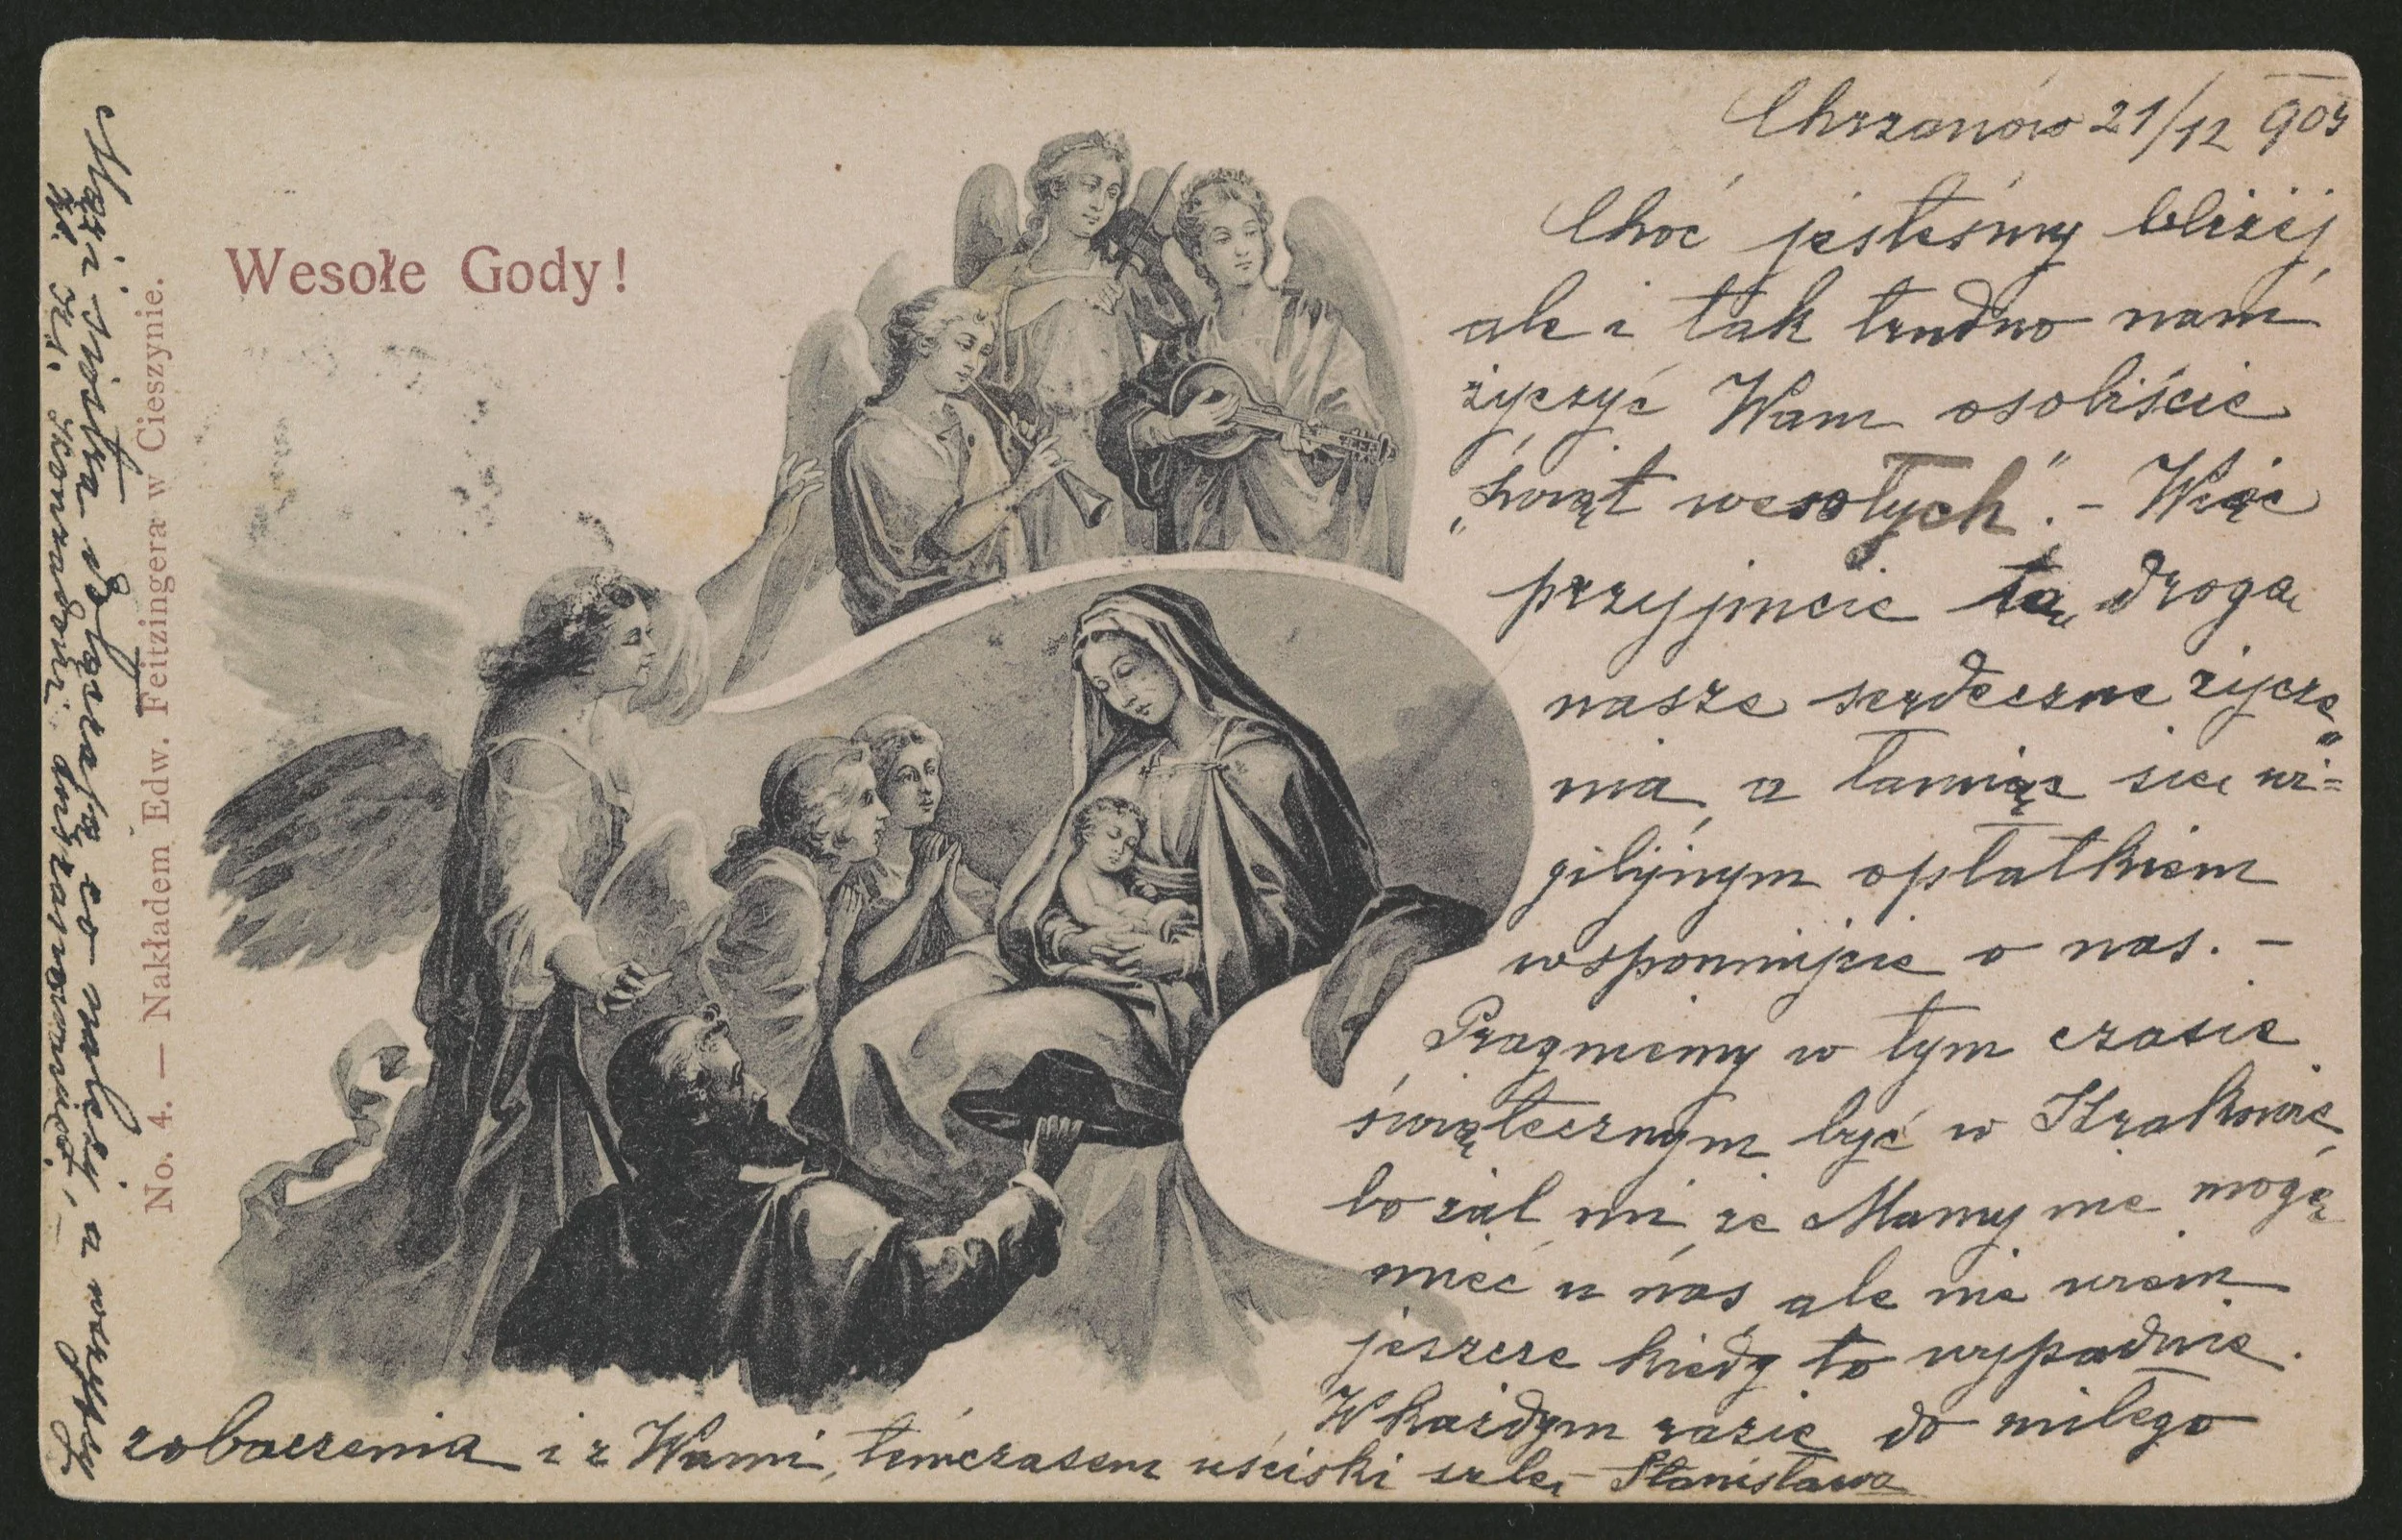 Wesołe Gody!
No. 4. — Nakładem Edw. Feitzingera w Cieszynie.
Chrzanów 21/12 903
Choć jesteśmy bliżej,
ale i tak trudno nam
życzyć Wam osobiście
„Świąt wesołych”. - Więc
przyjmcie tą drogą
nasze serdeczne życze„
nia, a łamiąc się wi=
gilijnym opłatkiem
wspomnijcie o nas. -
Pragniemy w tym czasie
świątecznym być w Krakowie,
bo żal mi, że Mamy nie mogę
mieć u nas, ale nie wiem
jeszcze kiedy to wypadnie.
W każdym razie do miłego
zobaczenia i z Wami, tymczasem uściski szlę - Stanisława
Mąż i siostra dołączają co należy a wszyscy
Konradowi